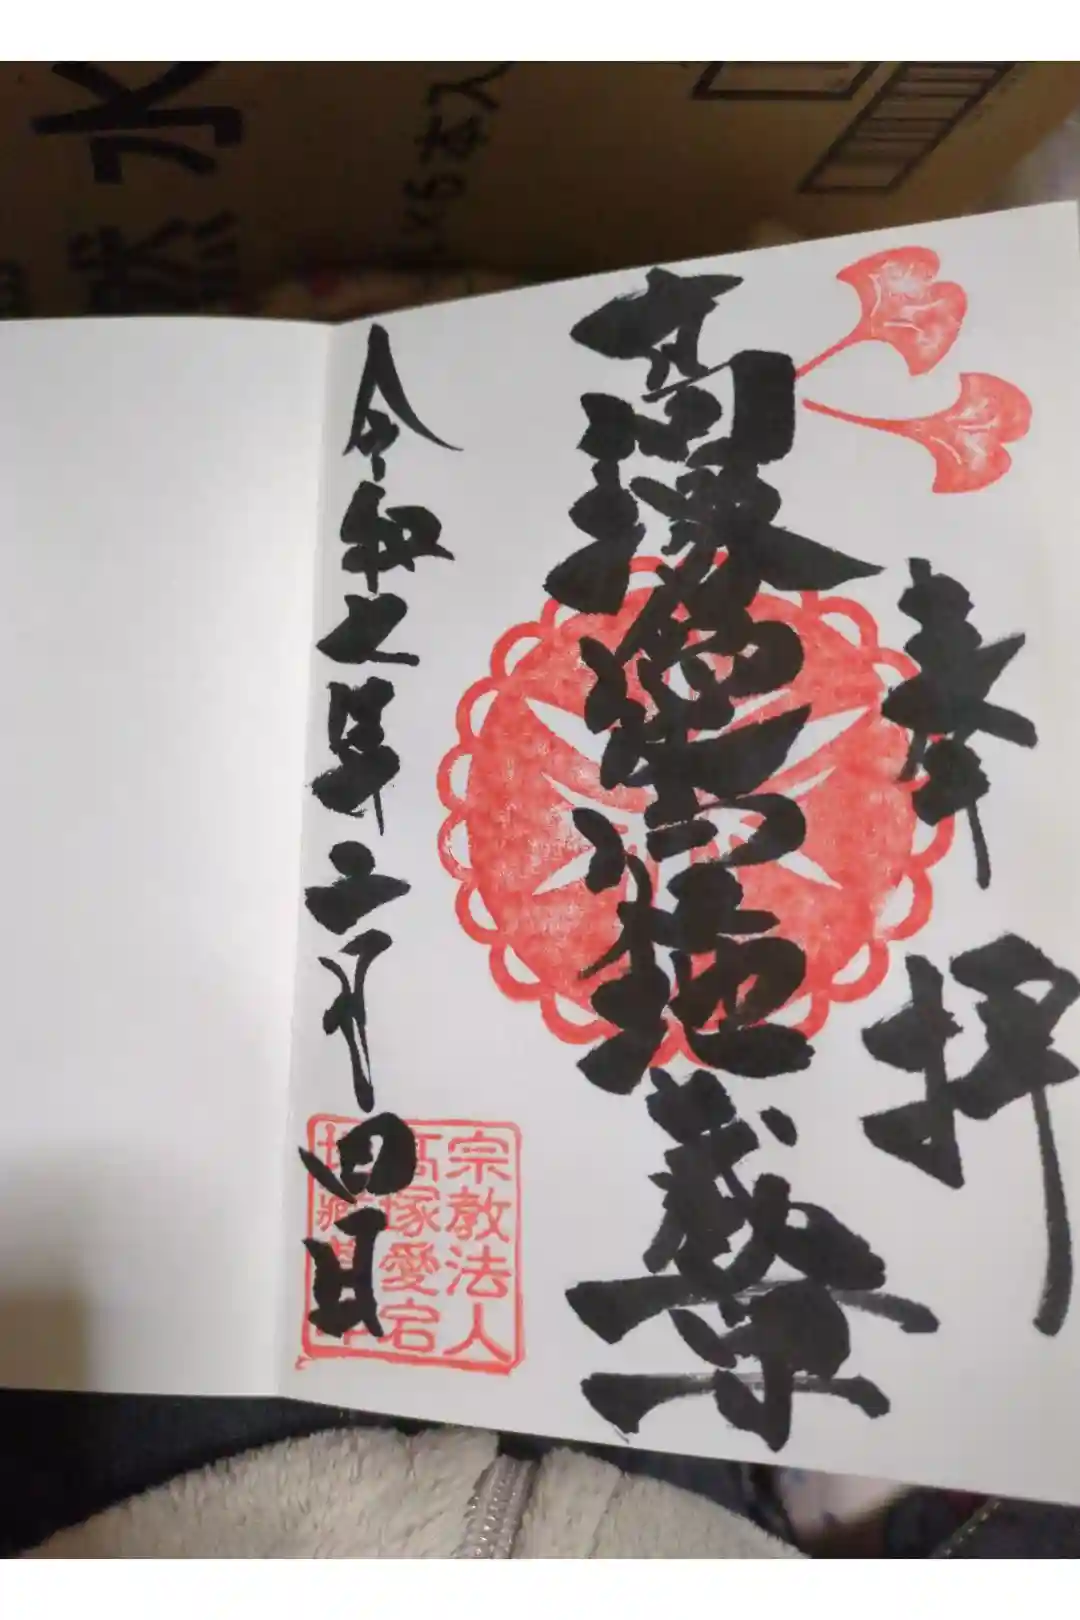 奉拝
高塚愛宕地蔵尊
令和七年二月四日
宗教法人
高塚愛宕
地蔵尊印
天然水